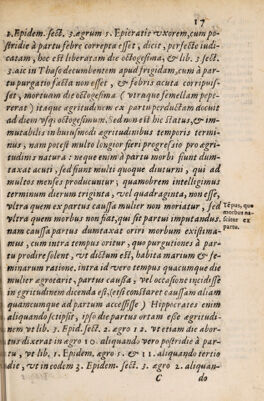 17
1. Epidem. sect. 3. agrum 5. Epicratis vxorem, cum po-
stridie à partu febre correpta esset, dicit, perfecte iudi-
catam, hoc est liberatam die octogesima, & lib. 3 sect.
3. ait in Thaso decumbentem apud frigidam, cum à par-
tu purgatio facta non esset, & febris acuta corripuis-
set, mortuam die octogesima (vtraque femellam pepe-
rerat) itaque ægritudinem ex partu perductam dicunt
ad diem vsq; octogesimum. Sed non est hic status, & im-
mutabilis in huiusmodi ægritudinibus temporis termi-
nus, nam potest multo longior fieri progressio pro ægri-
tudinis natura: neque enim à partu morbi fiunt dum-
taxat acuti, sed fiunt multi quoque diuturni, qui ad
multos menses producuntur, quamobrem intelligimus
terminum dierum triginta, vel quadraginta, non esse,
vltra quem ex partus caussa mulier non moriatur, sed
vltra quem morbus non fiat, qui sit partui imputandus.
nam caussa partus dumtaxat oriri morbum existima-
mus, cum intra tempus oritur, quo purgutiones à par-
tu prodire solent, vt dictum est, habita marium & fe-
minarum ratione, intra id vero tempus quacumque die
mulier ægrotarit, partus caussa, vel occasione incidisse
in ægritudinem dicenda est. (etsi constaret caussam aliam
quamcumque ad partum accessisse) Hippocrates enim
aliquando scripsit, ipso die partus ortam esse ægritudi-
nem vt lib. 3. Epid. sect. 2. ægro 12. vt etiam die abor-
sus dixerat in ægro 10. aliquando vero postridie à par-
tu, vt lib. 1. Epidem. ægro 5. & 11. aliquando tertio
die, vt in eodem 3. Epidem. sect. 3. ægro 2. aliquan-
C do
Tēpus, quo
morbus na-
scitur ex
partu.